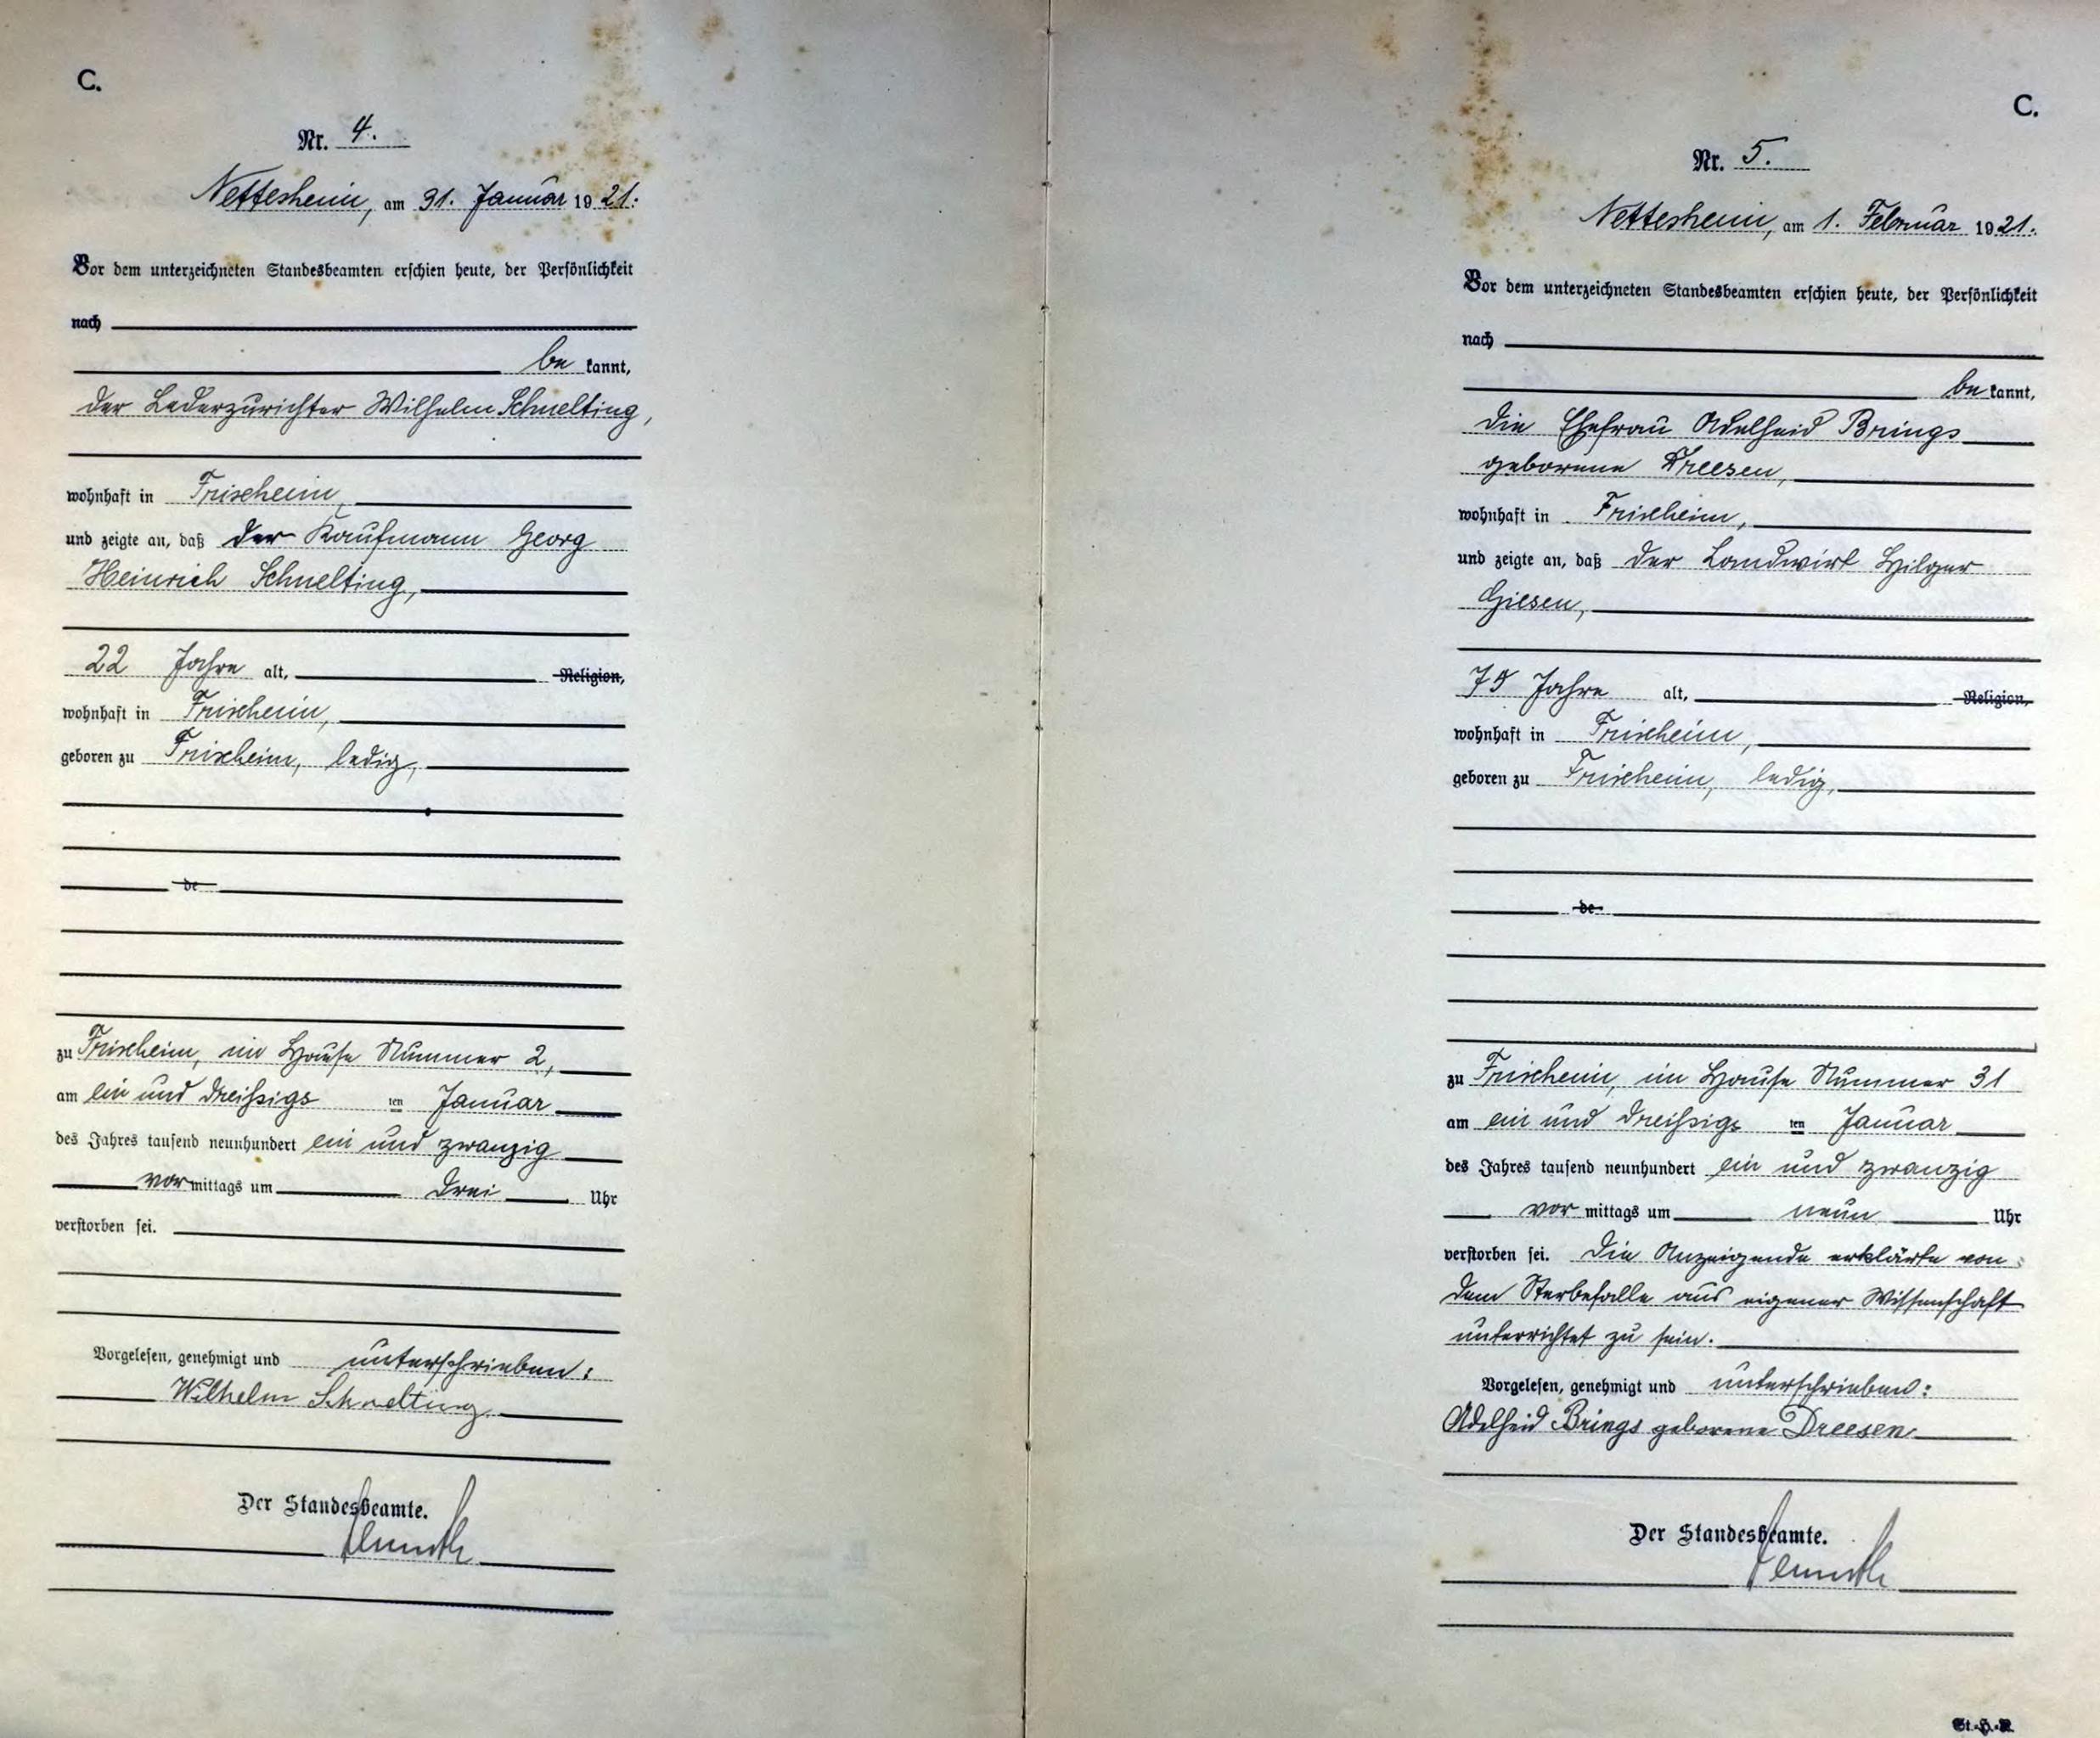 C.
Nr. 4.
Nettesheim, am 31. Januar 1921.
Vor dem unterzeichneten Standesbeamten erschien heute, der Persönlichkeit
nach
be kannt,
der Lederzurichter Wilhelm Schnelting,
wohnhaft in Frixheim,
und zeigte an, daß der Kaufmann Georg
Heinrich Schnelting,
22 Jahre alt, Religion,
wohnhaft in Frixheim,
geboren zu Frixheim, ledig,
de
zu Frixheim, im Hause Nummer 2,
am ein und dreißigs ten Januar
des Jahres tausend neunhundert ein und zwanzig
vor mittags um drei Uhr
verstorben sei.
Vorgelesen, genehmigt und unterschrieben:
Wilhelm Schnelting
Der Standesbeamte.
C.
Nr. 5.
Nettesheim, am 1. Februar 1921.
Vor dem unterzeichneten Standesbeamten erschien heute, der Persönlichkeit
nach
be kannt,
die Ehefrau Adelheid Brings
geborene Dreesen,
wohnhaft in Frixheim,
und zeigte an, daß der Landwirt Hilger
Giesen,
75 Jahre alt, Religion,
wohnhaft in Frixheim,
geboren zu Frixheim, ledig,
de
zu Frixheim, im Hause Nummer 31
am ein und dreißigs ten Januar
des Jahres tausend neunhundert ein und zwanzig
vor mittags um neun Uhr
verstorben sei. Die Anzeigende erklärte von
dem Sterbefalle aus eigener Wissenschaft
unterrichtet zu sein.
Vorgelesen, genehmigt und unterschrieben:
Adelheid Brings geborene Dreesen
Der Standesbeamte.